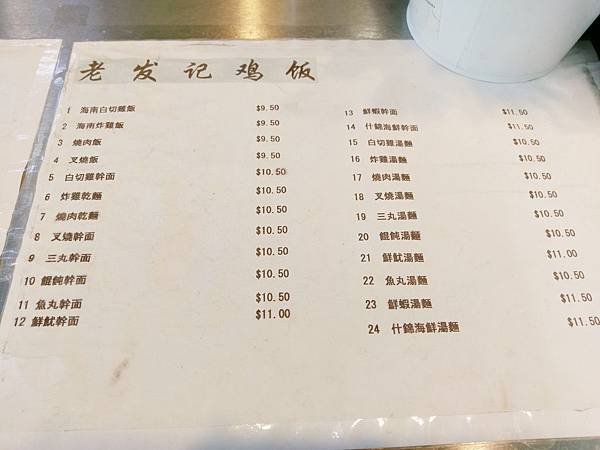 老发记鸡饭
1 海南白切雞飯 $9.50
2 海南炸雞飯 $9.50
3 燒肉飯 $9.50
4 叉燒飯 $9.50
5 白切雞幹面 $10.50
6 炸雞乾麵 $10.50
7 燒肉乾麵 $10.50
8 叉燒幹面 $10.50
9 三丸幹面 $10.50
10 餛飩幹面 $10.50
11 魚丸幹面 $10.50
12 鮮魷幹面 $11.00
13 鮮蝦幹面 $11.50
14 什錦海鮮幹面 $11.50
15 白切雞湯麵 $10.50
16 炸雞湯麵 $10.50
17 燒肉湯麵 $10.50
18 叉燒湯麵 $10.50
19 三丸湯麵 $10.50
20 餛飩湯麵 $10.50
21 鮮魷湯麵 $11.00
22 魚丸湯麵 $10.50
23 鮮蝦湯麵 $11.50
24 什錦海鮮湯麵 $11.50